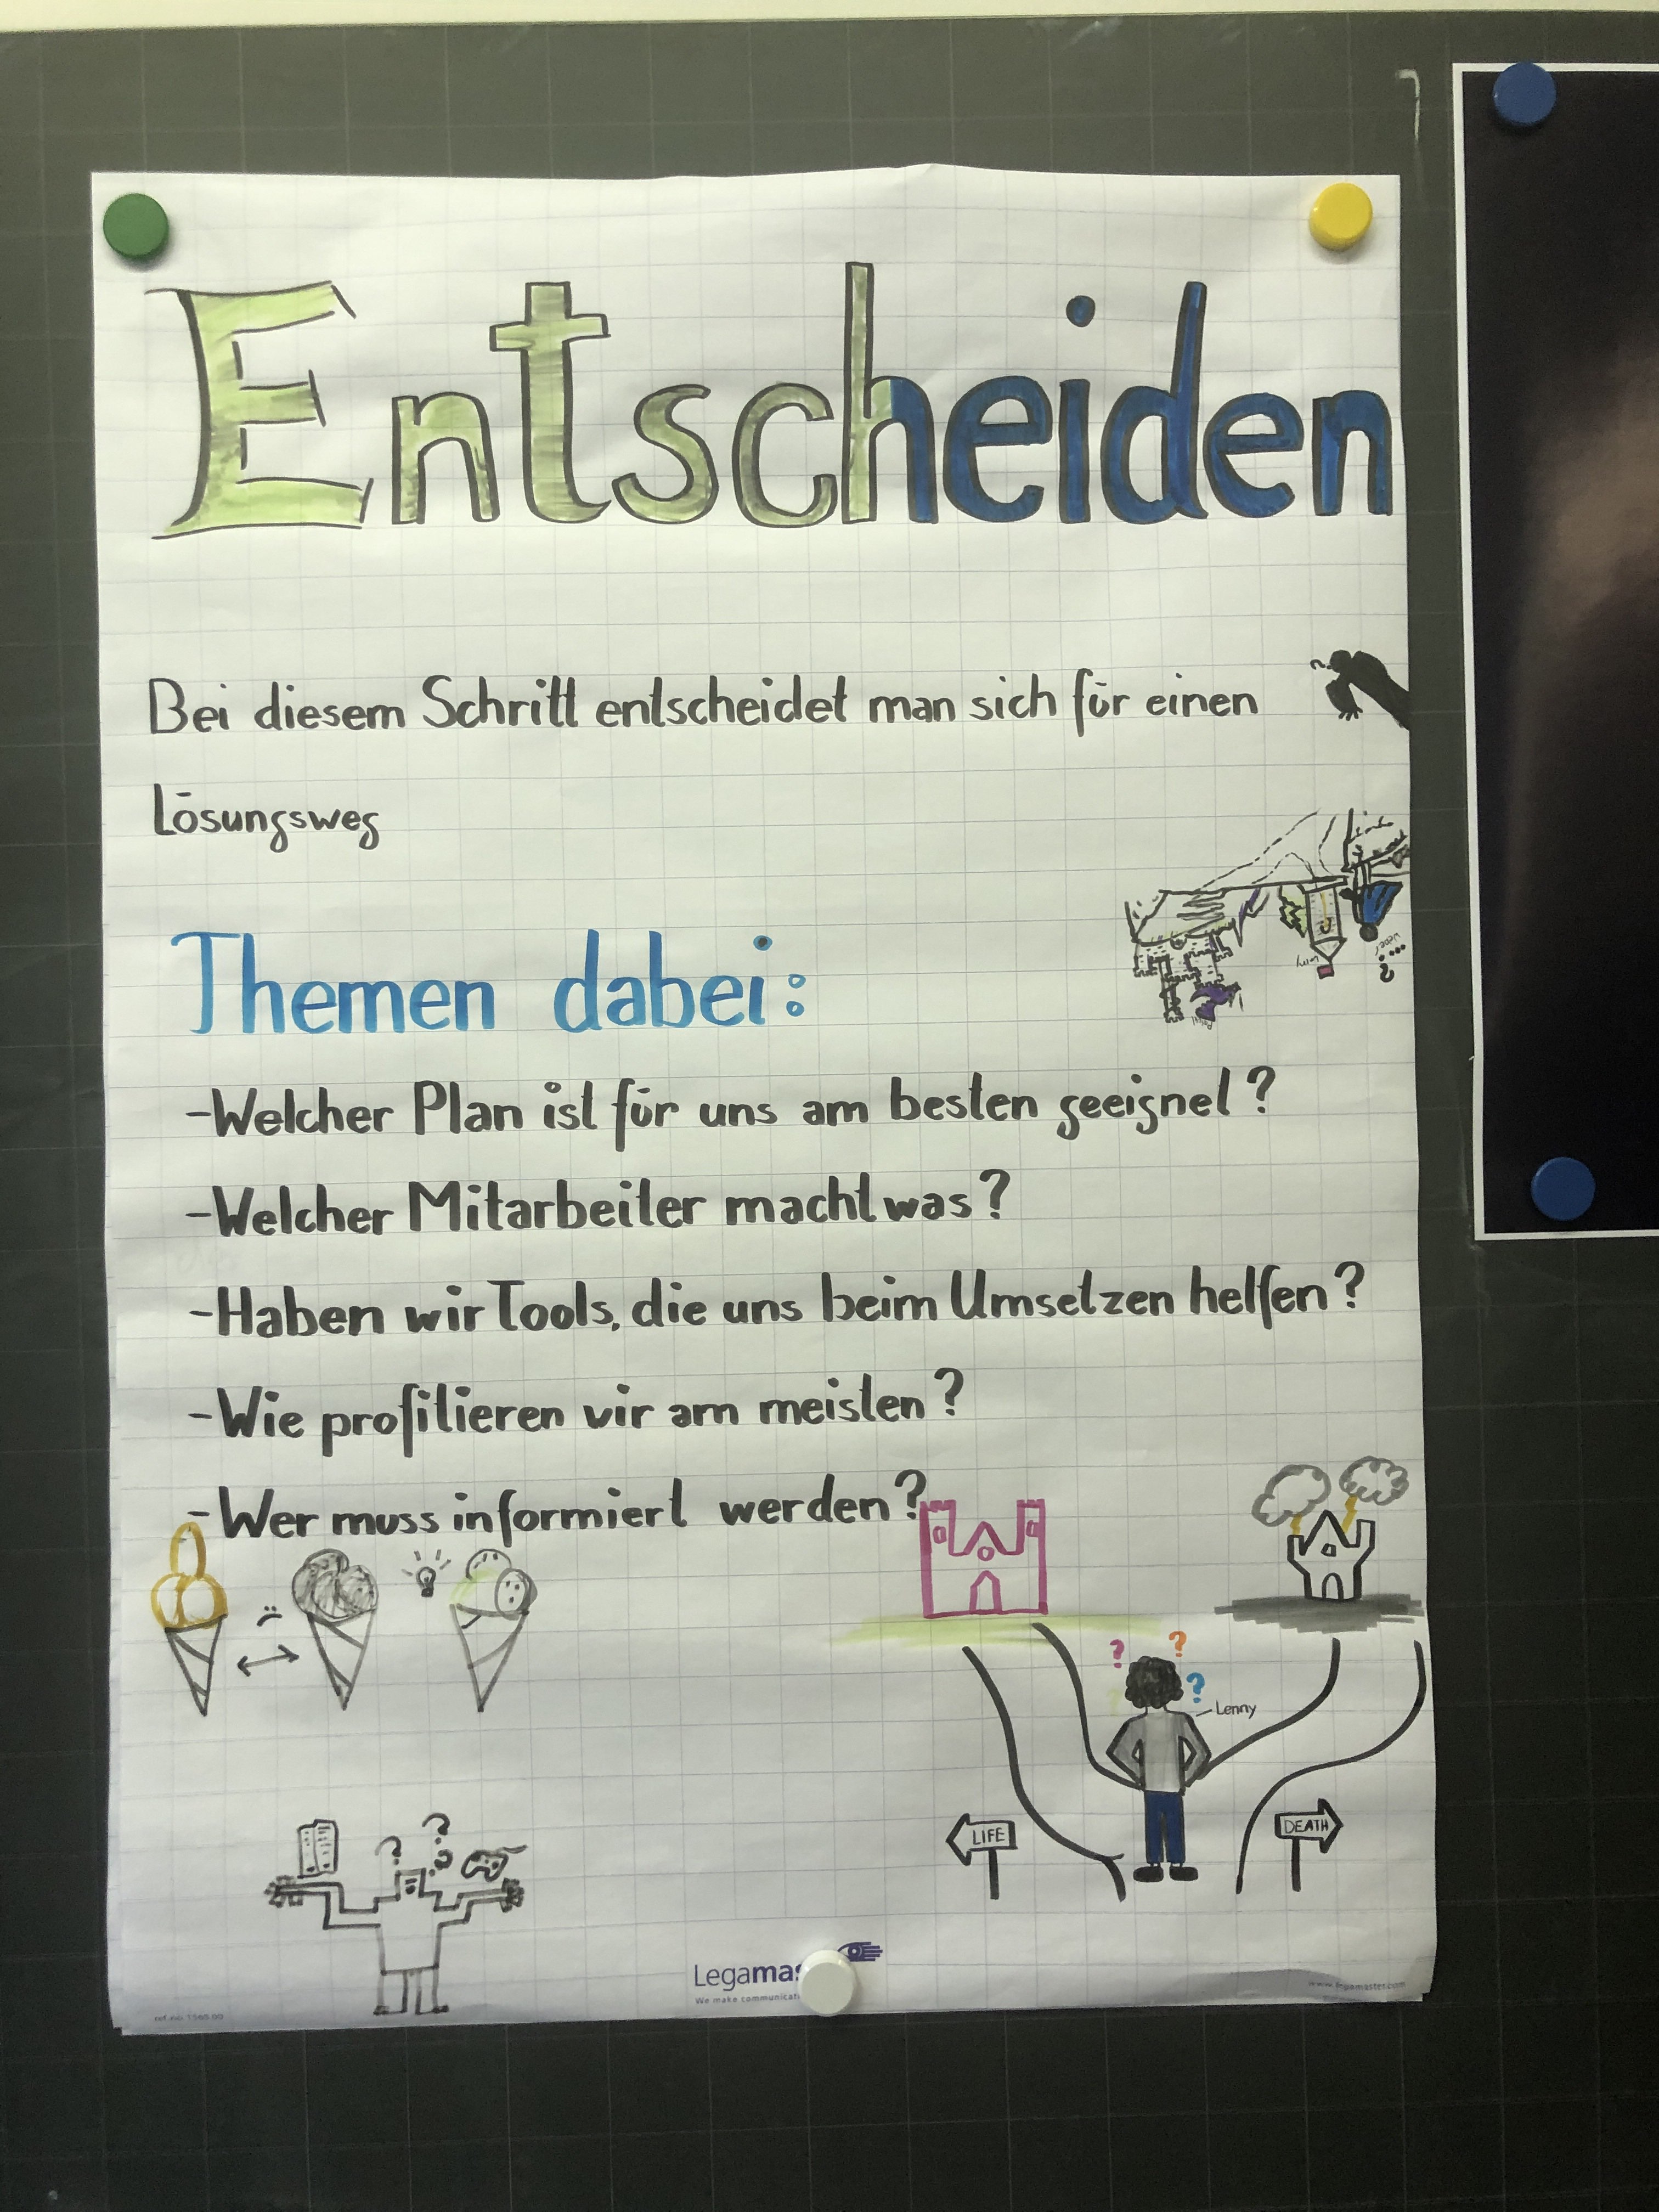 Entscheiden
Bei diesem Schritt entscheidet man sich für einen
Lösungsweg
Themen dabei:
-Welcher Plan ist für uns am besten geeignet?
-Welcher Mitarbeiter macht was?
-Haben wir Tools, die uns beim Umsetzen helfen?
-Wie profitieren wir am meisten?
-Wer muss informiert werden?
?
?
?
Lenny
? ?
LIFE
DEATH
Legamas
We make communicati
www.legamaster.com